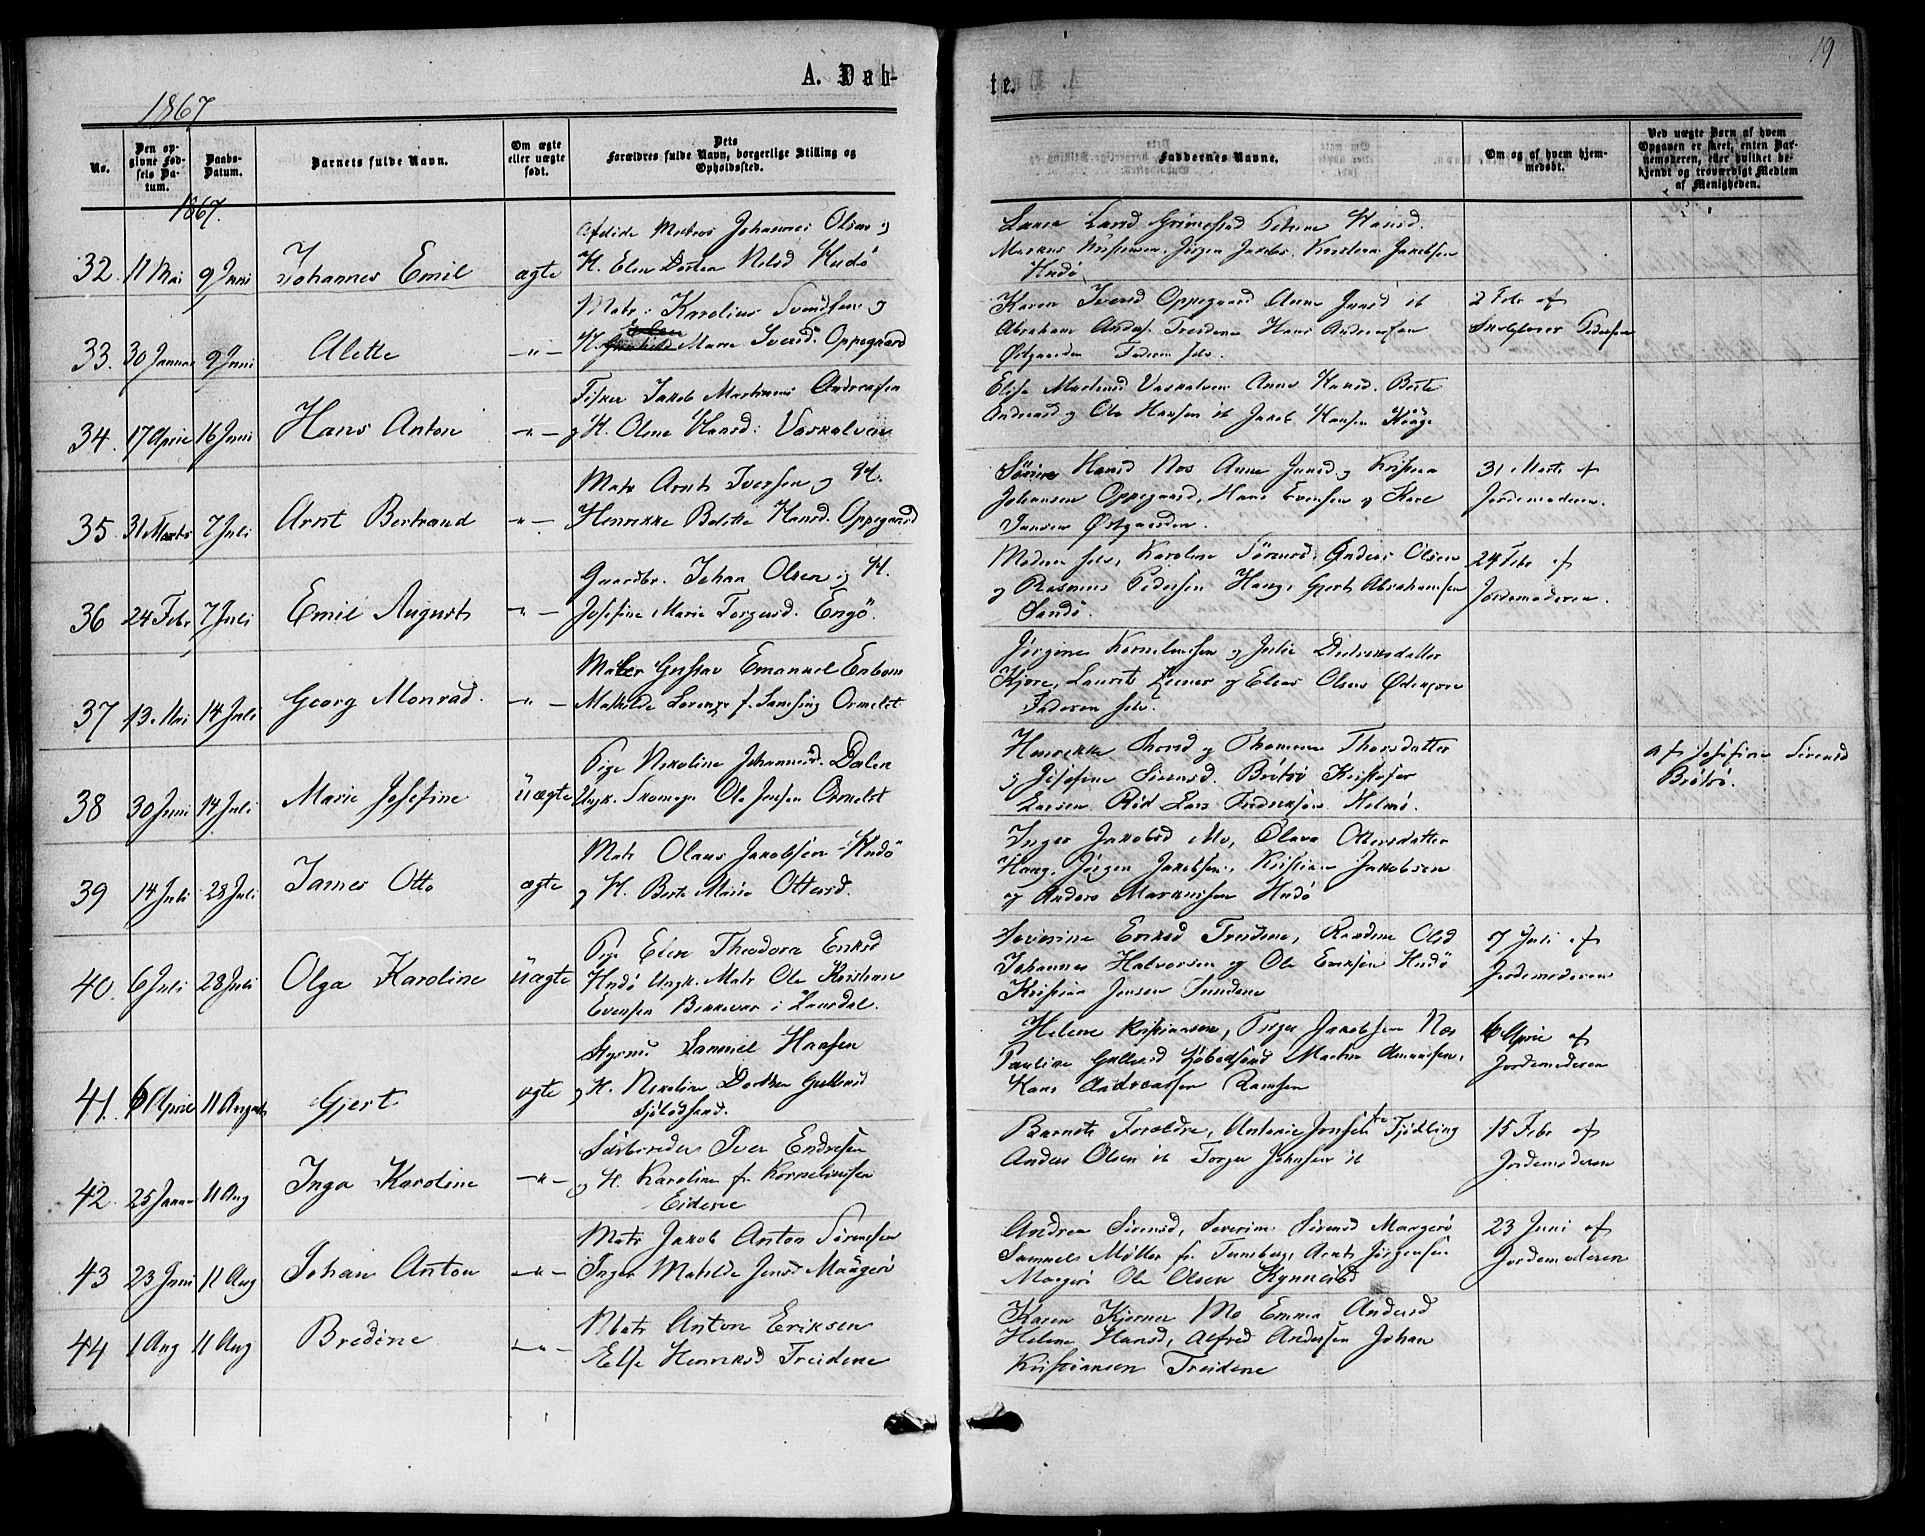 19
A. Dab-
te.
1867
No.
Den op-
givne Fød-
sels Da-
tum.
Daabs-
Datum.
Barnets fulde Navn.
Om ægte
eller uægte
født.
Dets
Forældres fulde Navn, borgerlige Stilling og
Opholdssted.
Faddernes Navne.
Om og af hvem hjem-
medøbt.
Ved uægte Børn af hvem
Opgaven er skeet, enten Bar-
nemoderen, eller hvilket be-
kjendt og troværdigt Medlem
af Menigheden.
1867.
32. 11 Mai 9 Juni Johannes Emil ægte
Afdøde Matros Johannes Olsen og
H. Elen Dortea Nilsd Hudø
Larsd Grimestad Hansd.
Markus Kristensen, Jørgen Jakobs. Kristian Jakobsen
Hudø
33. 30 Januar 9 Juni Alette -"-
Matr. Karolius Svendsen og
H. Marie Iversd. Oppegaard
Karen Iversd Oppegaard Anne Jensd it
Abraham Anders. Treidene Hans Andersen
Østgaarden Faderen selv.
2 Febr af
Skolelærer Pedersen
34. 17 April 16 Juni Hans Anton -"-
Fisker Jakob Martinius Andreasen
og H. Oline Hansd: Vaskalven
Elise Martinsd Vaskalven Anne Hansd. Berte
Andreasd og Ole Hansen it Jakob Hansen
35. 31 Marts 7 Juli Arnt Bertrand -"-
Matr Arnt Iversen og H.
Henrikke Bolette Hansd. Oppegaard
Sørine Hansd Nes Anne Jensd, Kristian
Johansen Oppegaard, Hans Evensen og Kare
Jansen Østgaarden.
31 Marts af
Jordemoderen.
36 24 Febr 7 Juli Emil August -"-
Gaardbr. Johan Olsen og H.
Josefine Marie Torgersd. Engø.
Moderen selv, Karoline Sørensd. Anders Olsen
og Rasmus Pedersen Haug, Gjert Abrahamsen
Sandø.
24 Febr af
Jordemoderen.
37 13 Mai 14 Juli Georg Monrad. -"-
Maler Gustav Emanuel Enbom
Mathilde Lorenze f. Ormelet
Jørgine Kornelius­sen og Julie Didriksdatter
Kjøre, Laurits og Elias Olsen
Faderen selv.
38 30 Juni 14 Juli Marie Josefine Uægte
Pige Nikoline Johannesd. Dalen
Ungk. Skomager Ole Jensen Ormelet
Henrikke og Thomine Thorsdatter
og Josefine Sørensd. Brøtsø Kristofer
Larsen Rød Lars Fredriksen Holmø.
af Josefine Sørensd
Brøtsø.
39 14 Juli 28 Juli James Otto ægte
Matr Olaus Jakobsen Hudø
og H. Berte Marie Ottersd.
Inger Jakobsd Mo, Olava Ottersdatter
Haug, Jørgen Jakobsen, Kristian Jakobsen
og Anders Markussen Hudø
40. 6 Juli 28 Juli Olga Karoline Uægte
Pige Elen Theodora Eriksd
Hudø Ungk. Matr Ole Kristian
Evensen Bekkevar i Laurdal.
Severine Eriksd Treidene, Olsd
Johannes Halvorsen og Ole Eriksen Hudø
Kristian Jensen Sundene
7 Juli af
Jordemoderen
41. 6 April 11 August Gjert ægte
Styrmd Samuel Hansen
og H. Nikoline Dorthea Gulliksd
Sjøbodsand.
Helene Kristiansen, Torger Jakobsen Nes
Pauline Gulliksd Sjøbodsand Martin Amundsen,
Hans Andreassen Ramsen
6 April af
Jordemoderen
42. 25 Januar 11 Aug Inga Karoline -"-
Selveier Iver Endresen
og H. Karoline f. Korneliussen
Eidene
Barnets Forældre, Antonie Tjødling
Anders Olsen it Torger Johnsen it
15 Febr af
Jordemoderen
43 23 Juni 11 Aug Johan Anton -"-
Matr Jakob Anton Sørensen
Inger Matilde Jensd Maagerø
Andrea Sørensd, Severine Sørensd Maagerø
Samuel Møller fr. Tunsberg, Arnt Jørgensen
Maagerø Ole Olsen
23 Juni af
Jordemoderen
44 1 Aug 11 Aug Bredine -"-
Matr Anton Eriksen
Else Henriksd Treidene
Karen Kjerner Mo Emma Andersd
Helene Hansd, Alfred Andersen Johan
Kristiansen Treidene